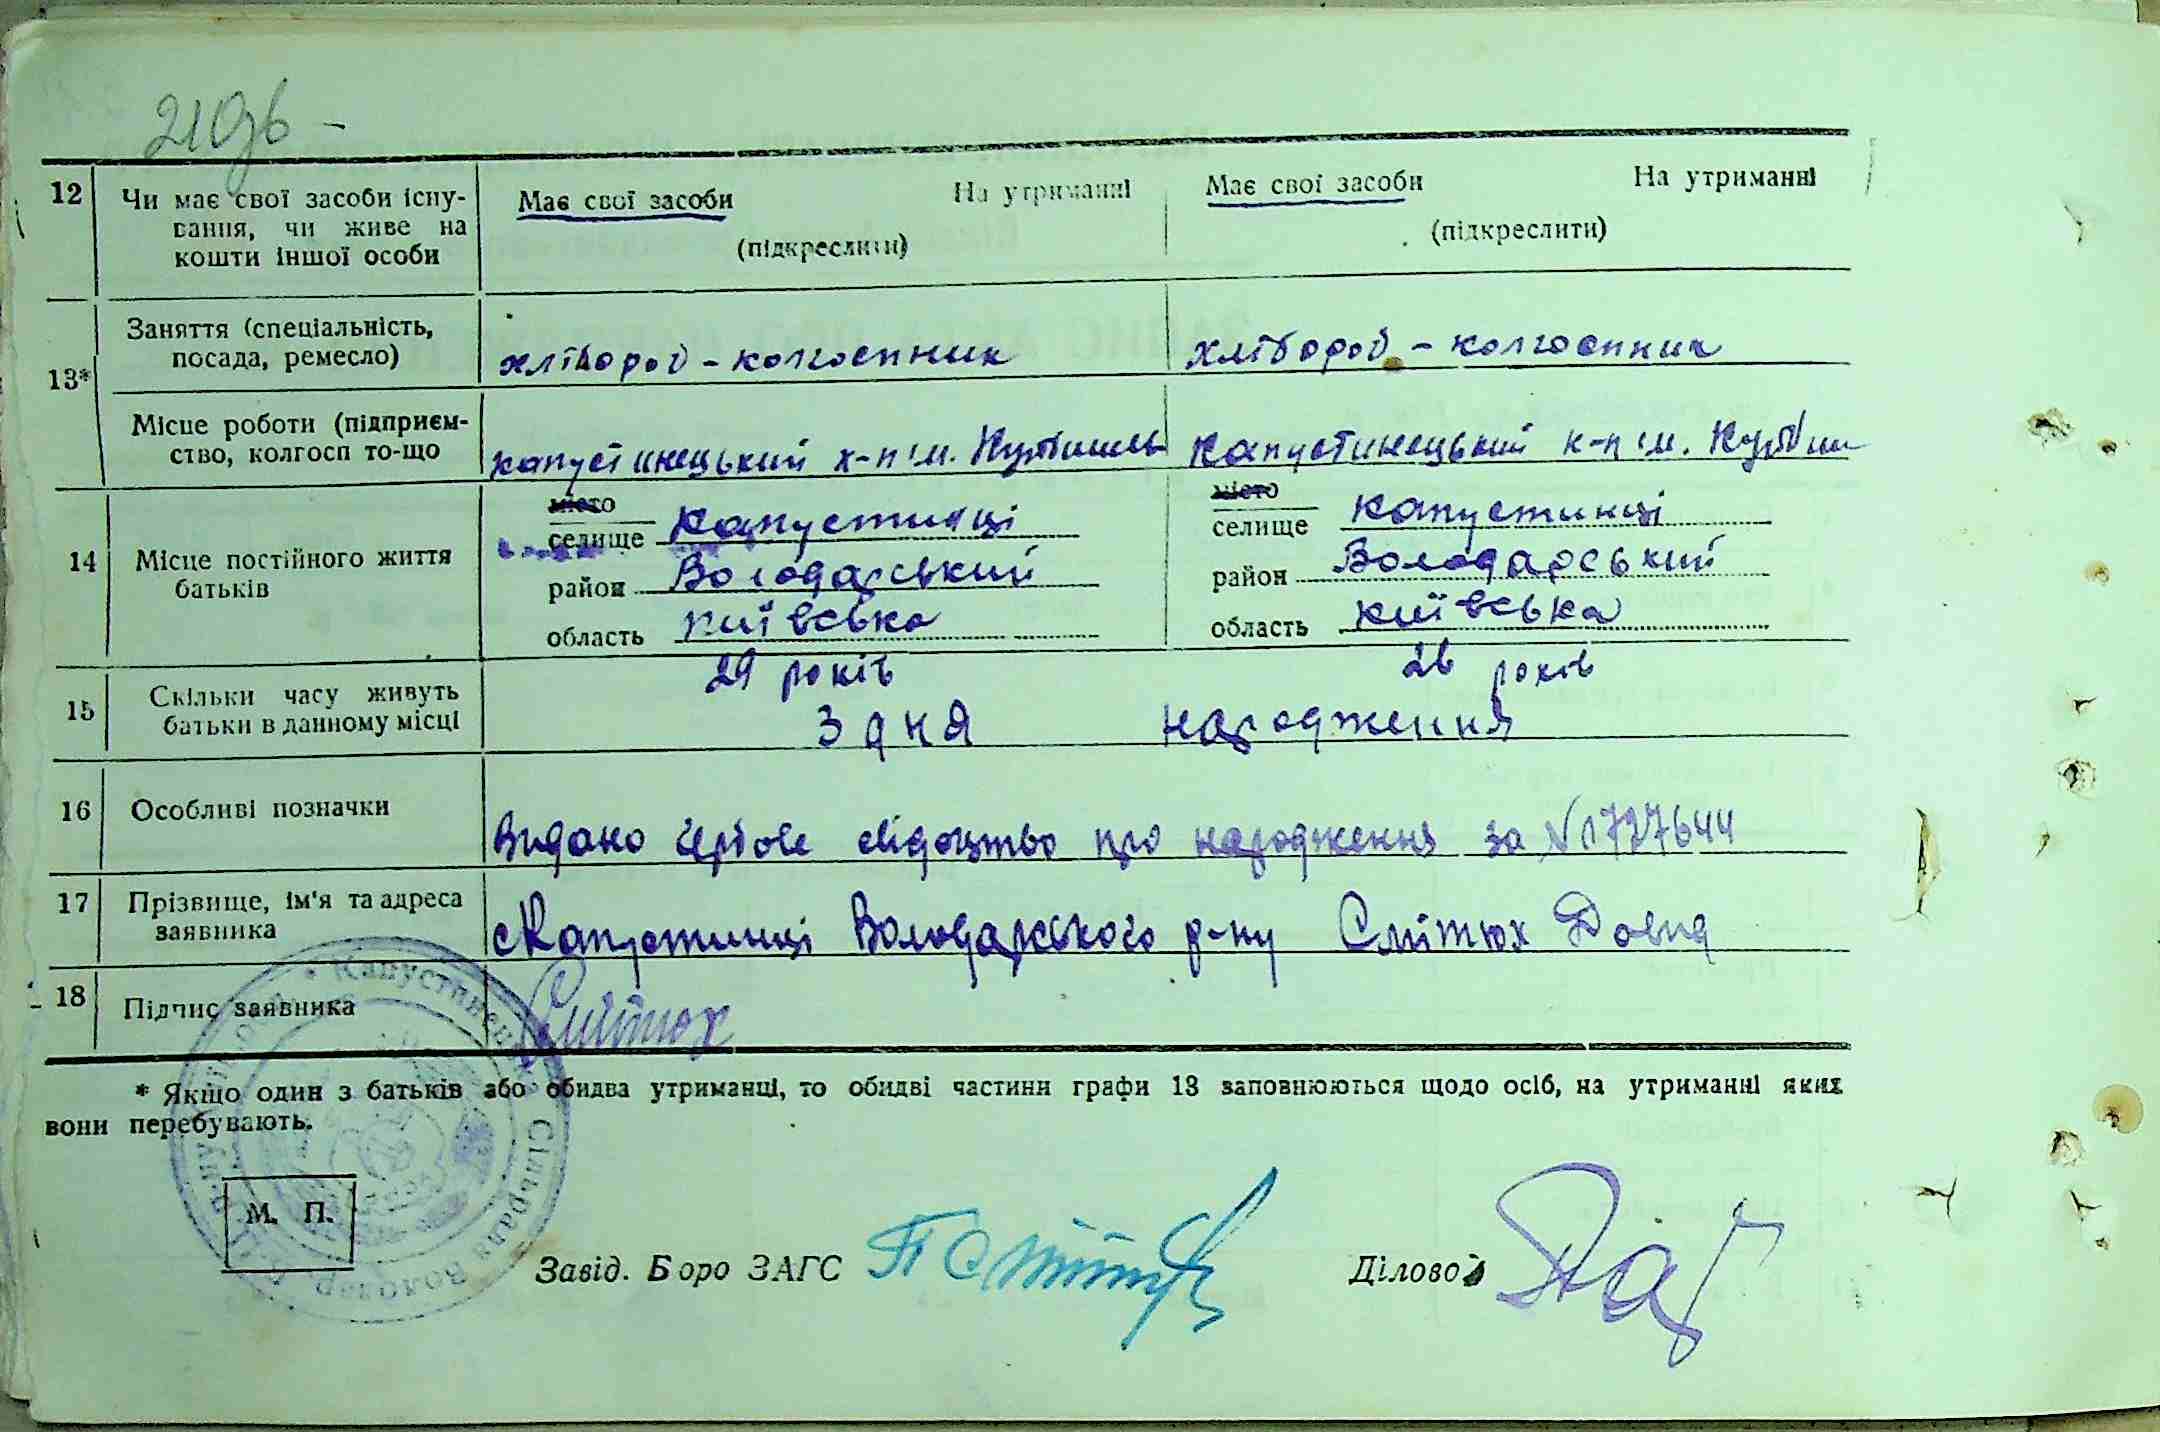 210зв -
12 Чи має свої засоби існу- Має свої засоби На утриманні Має свої засоби На утриманні
вання, чи живе на (підкреслити) (підкреслити)
кошти іншої особи
13* Заняття (спеціальність,
посада, ремесло) хлібороб - колгоспник хлібороб - колгоспник
Місце роботи (підприєм-
ство, колгосп то-що капустинецький к-п ім. Капустинецький к-п ім.
місто місто
селище Капустинці селище Капустинці
14 Місце постійного життя
батьків район Володарський район Володарський
область київська область київська
29 років 26 років
15 Скільки часу живуть
батьки в данному місці З дня народження
16 Особливі позначки
Видано свідоцтво про народження за № 1727644
17 Прізвище, ім'я та адреса
заявника с Капустинці Володарського р-ну Смітюх Довид
18 Підпис заявника Смітюх
* Якщо один з батьків або обидва утриманці, то обидві частини графи 13 заповнюються щодо осіб, на утриманні яких
вони перебувають.
Капустинецьк Сільрада Володар.
М. П.
Завід. Бюро ЗАГС Діловод